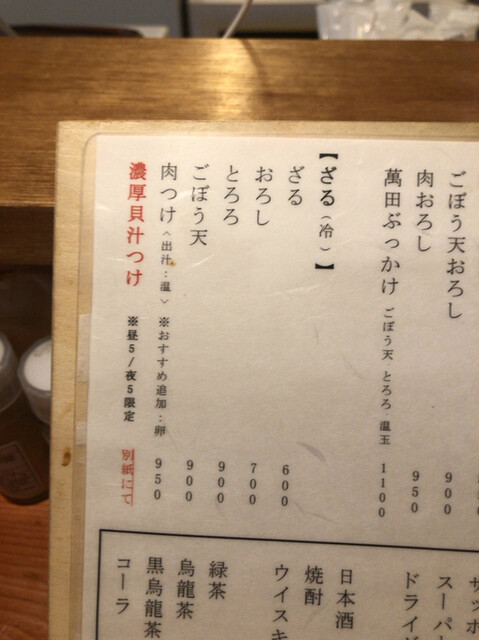 ごぼう天おろし 900
肉おろし 950
萬田ぶっかけ ごぼう天 とろろ 温玉 1100
【ざる（冷）】
ざる 600
おろし 700
とろろ 900
ごぼう天 900
肉つけ〈出汁：温〉※おすすめ追加：卵 950
濃厚貝汁つけ ※昼5/夜5限定 別紙にて
サッポ
スーパー
ドライ
日本酒
焼酎
ウイスキ
緑茶
烏龍茶
黒烏龍茶
コーラ